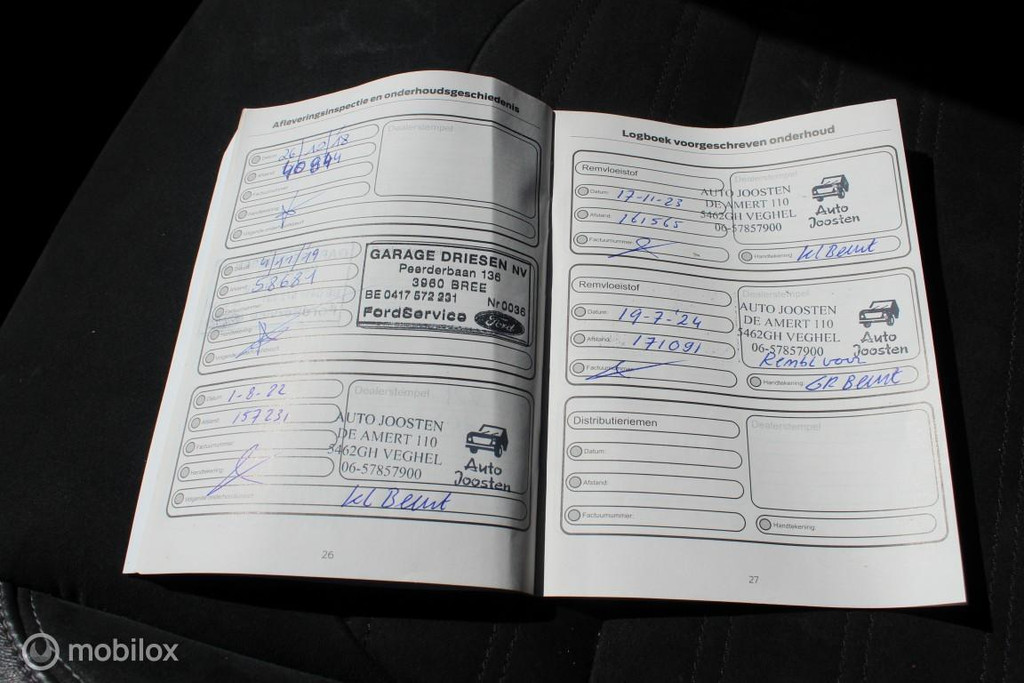 Afleveringsinspectie en onderhoudsgeschiedenis
Dealerstempel
Datum: 26/10/18
Afstand: 40944
Factuurnummer:
Handtekening:
4/11/19
Afstand: 58681
GARAGE DRIESEN NV
Peerderbaan 136
3960 BREE
BE 0417 572 231 Nr 0036
FordService Ford
Datum: 1-8-22
Afstand: 157231
Factuurnummer:
Handtekening:
Dealerstempel
AUTO JOOSTEN
DE AMERT 110
5462GH VEGHEL
06-57857900
Auto
Joosten
26
Logboek voorgeschreven onderhoud
Remvloeistof
Datum: 17-11-23
Afstand: 161565
Factuurnummer:
Dealerstempel
AUTO JOOSTEN
DE AMERT 110
5462GH VEGHEL
06-57857900
Auto
Joosten
Handtekening:
Remvloeistof
Datum: 19-7-24
Afstand: 171091
Factuurnummer:
Dealerstempel
AUTO JOOSTEN
DE AMERT 110
5462GH VEGHEL
06-57857900
Auto
Joosten
Handtekening:
Distributieriemen
Datum:
Afstand:
Factuurnummer:
Dealerstempel
Handtekening:
27
mobilox